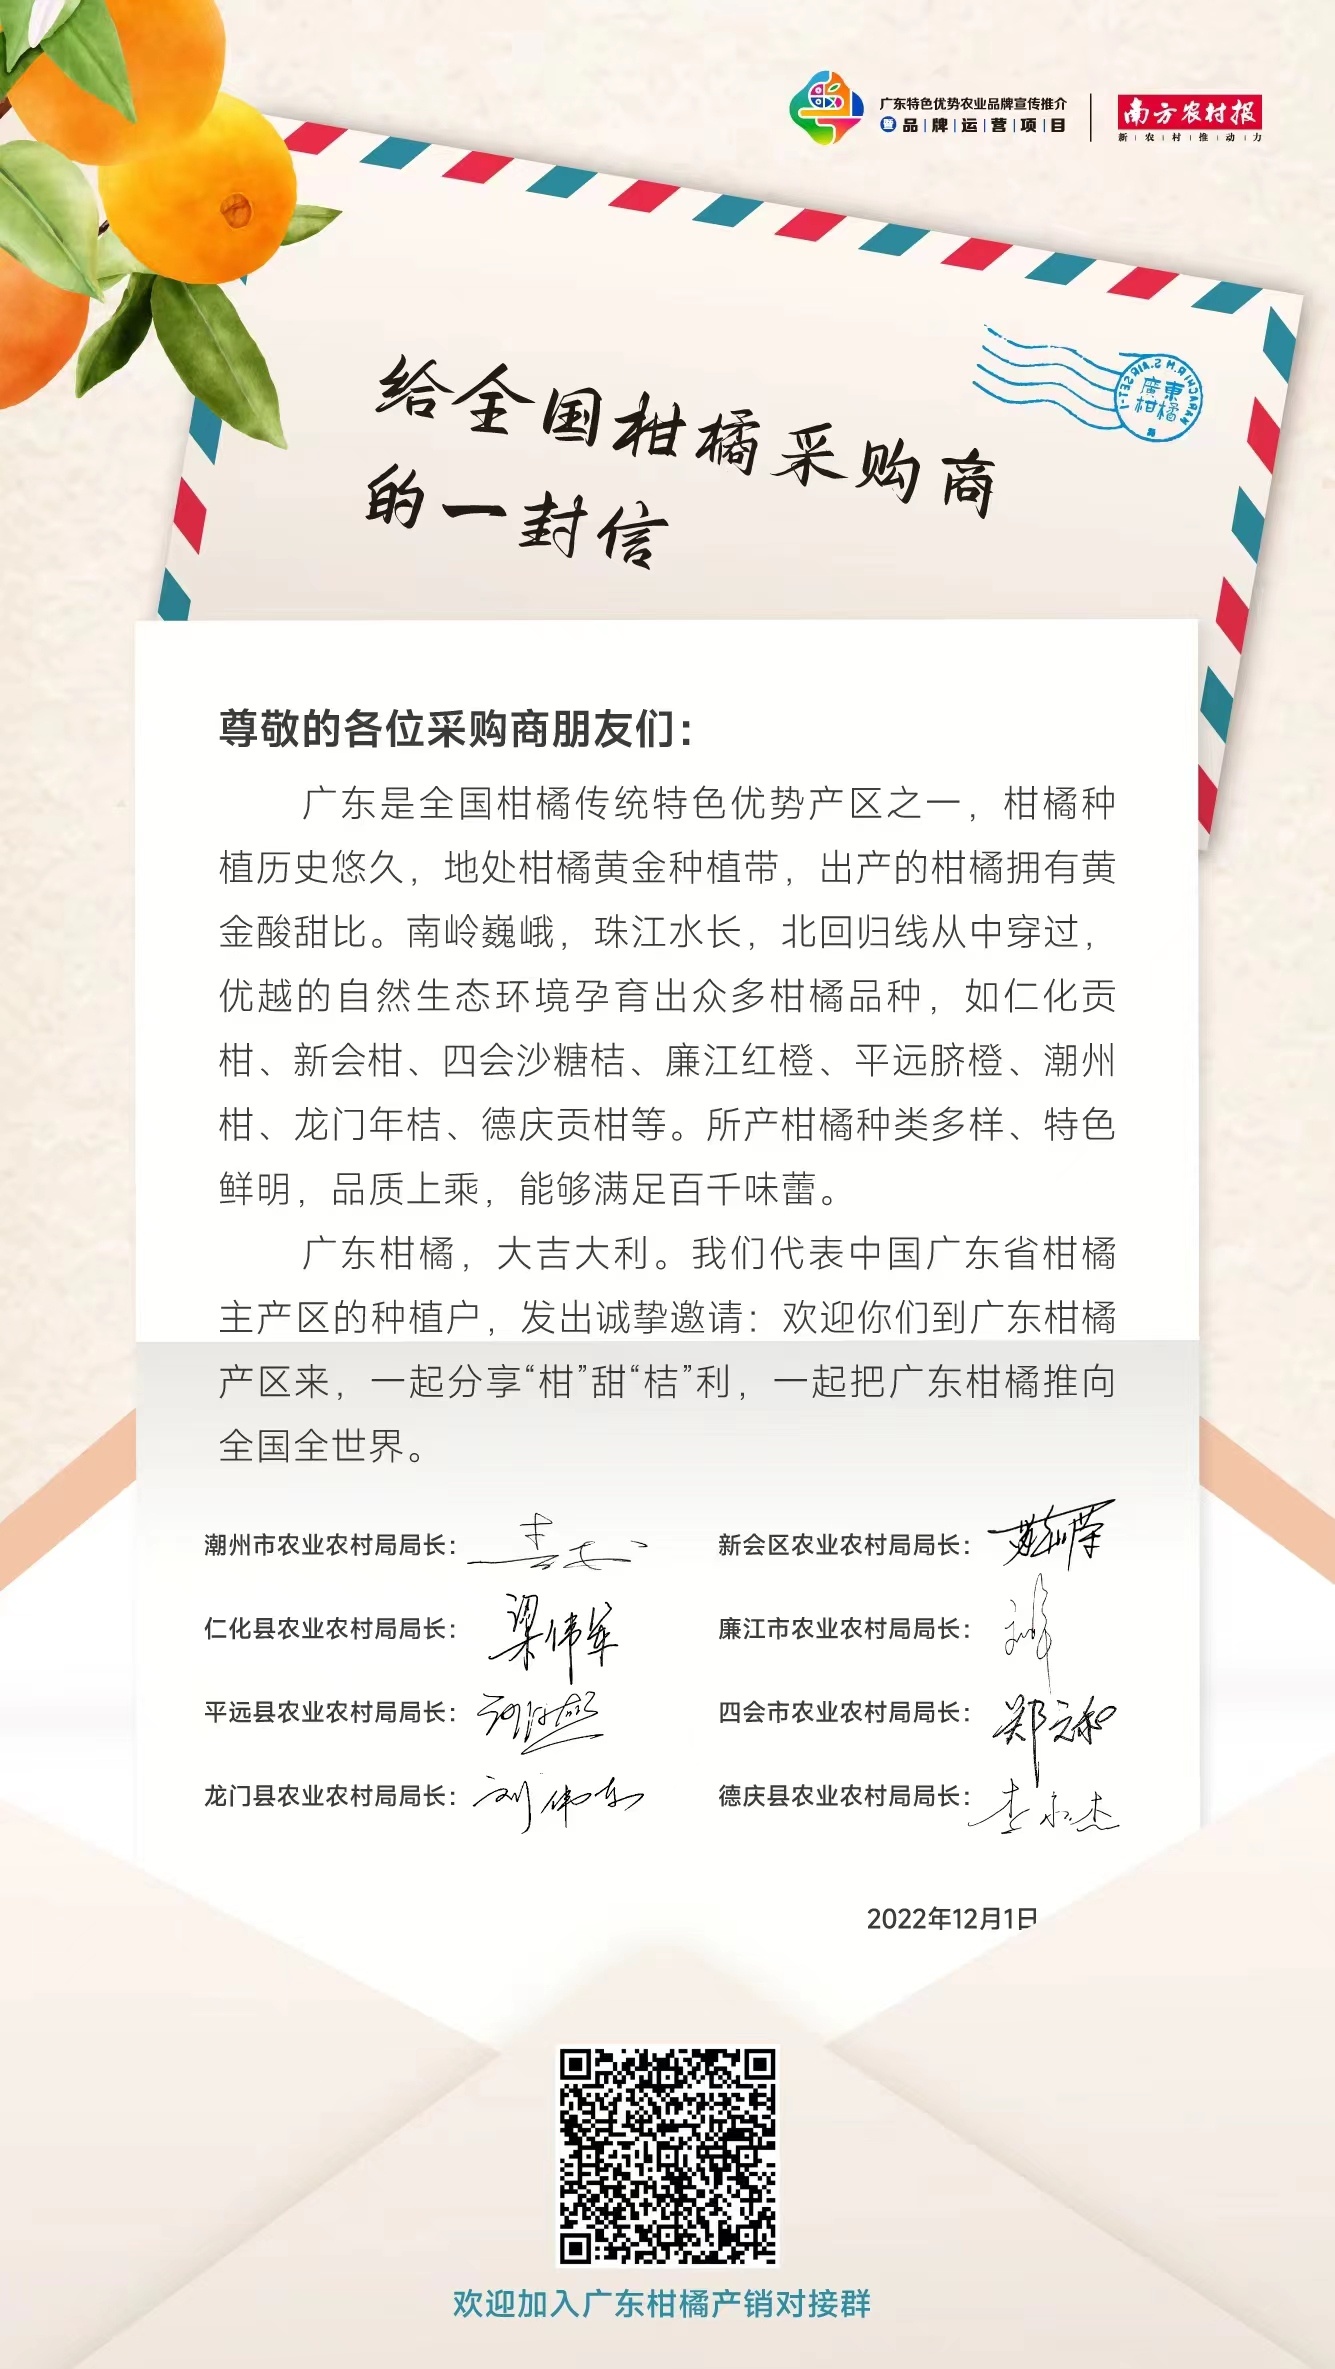 广东特色优势农业品牌宣传推介
暨品牌运营项目
南方农村报
新农村推动力
给全国柑橘采购商
的一封信
廣東
柑橘
尊敬的各位采购商朋友们：
广东是全国柑橘传统特色优势产区之一，柑橘种
植历史悠久，地处柑橘黄金种植带，出产的柑橘拥有黄
金酸甜比。南岭巍峨，珠江水长，北回归线从中穿过，
优越的自然生态环境孕育出众多柑橘品种，如仁化贡
柑、新会柑、四会沙糖桔、廉江红橙、平远脐橙、潮州
柑、龙门年桔、德庆贡柑等。所产柑橘种类多样、特色
鲜明，品质上乘，能够满足百千味蕾。
广东柑橘，大吉大利。我们代表中国广东省柑橘
主产区的种植户，发出诚挚邀请：欢迎你们到广东柑橘
产区来，一起分享“柑”甜“桔”利，一起把广东柑橘推向
全国全世界。
潮州市农业农村局局长：
新会区农业农村局局长：
仁化县农业农村局局长：梁伟军
廉江市农业农村局局长：
平远县农业农村局局长：
四会市农业农村局局长：郑元和
龙门县农业农村局局长：刘伟东
德庆县农业农村局局长：李永杰
2022年12月1日
欢迎加入广东柑橘产销对接群